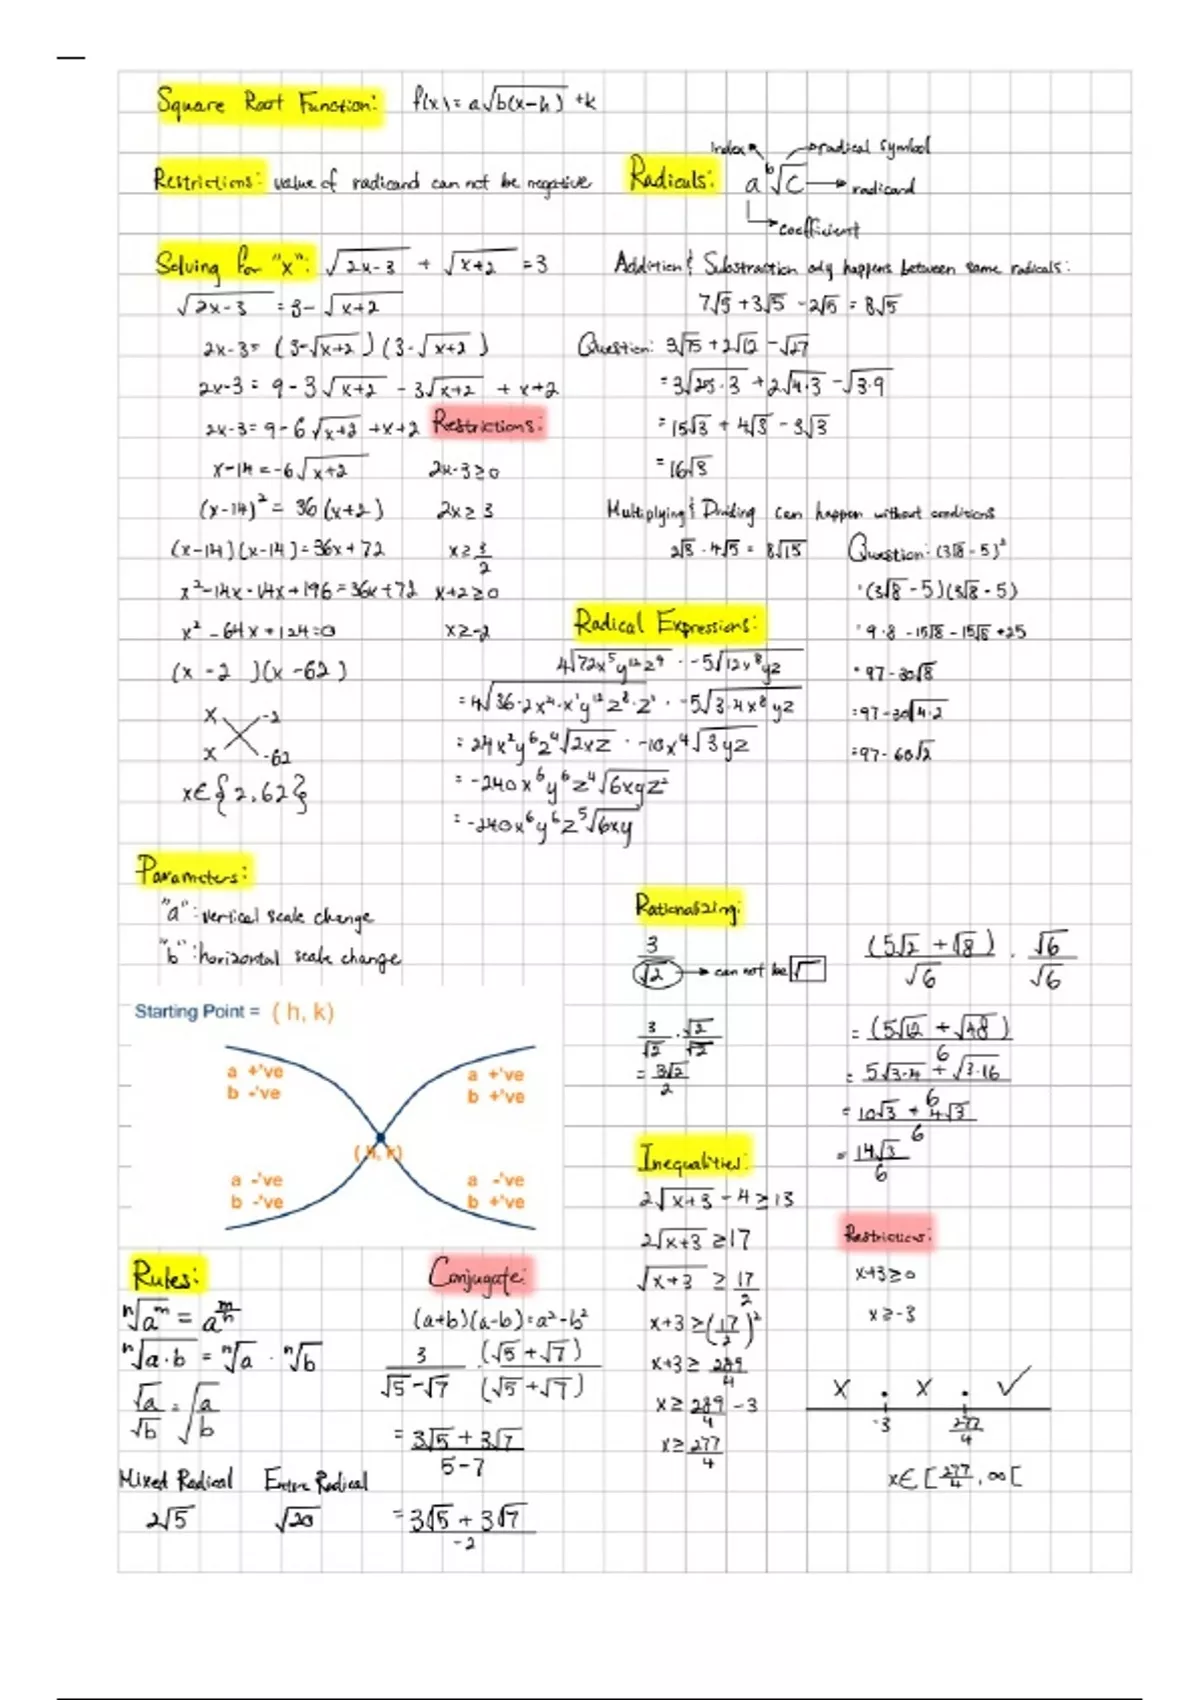 Square Root Function: f(x) = a√(b(x-h)) + k
Restrictions: value of radicand can not be negative
Radicals: a ᵇ√c
index
radical symbol
radicand
coefficient
Solving for "x": √(2x-3) + √(x+2) = 3
√(2x-3) = 3 - √(x+2)
2x-3 = (3-√(x+2))(3-√(x+2))
2x-3 = 9 - 3√(x+2) - 3√(x+2) + x+2
2x-3 = 9-6√(x+2) +x+2
x-14 = -6√(x+2)
(x-14)² = 36(x+2)
(x-14)(x-14) = 36x+72
x²-14x-14x+196 = 36x+72
x² - 64x + 124 = 0
(x - 2 )(x - 62)
x -2
x -62
x∈{2,62}
Restrictions:
2x-3≥0
2x≥3
x≥3/2
x+2≥0
x≥-2
Addition & Substraction only happens between same radicals:
7√5 + 3√5 - 2√5 = 8√5
Question: 3√75 + 2√12 - √27
= 3√(25·3) + 2√(4·3) - √(3·9)
= 15√3 + 4√3 - 3√3
= 16√3
Multiplying & Dividing can happen without conditions
2√3 · 4√5 = 8√15
Question: (3√8 - 5)²
(3√8 - 5)(3√8 - 5)
9·8 - 15√8 - 15√8 + 25
97 - 30√8
= 97 - 30√(4·2)
= 97 - 60√2
Radical Expressions:
4√(72x⁵y¹²z⁹) · -5√(12x⁸yz)
= 4√(36·2x⁴·x¹y¹²z⁸·z¹) · -5√(3·4x⁸yz)
= 24x²y⁶z⁴√(2xz) · -10x⁴√(3yz)
= -240x⁶y⁶z⁴√(6xyz²)
= -240x⁶y⁶z⁵√(6xy)
Parameters:
"a": vertical scale change
"b": horizontal scale change
Starting Point = ( h, k)
a +'ve
b -'ve
a +'ve
b +'ve
(h, k)
a -'ve
b -'ve
a -'ve
b +'ve
Rationalizing:
3/√2 → can not be √
3/√2 · √2/√2
= 3√2/2
(5√2 + √8)/√6 · √6/√6
= (5√12 + √48)/6
= (5√(3·4) + √(3·16))/6
= (10√3 + 4√3)/6
= 14√3/6
Inequalities:
2√(x+3) - 4 ≥ 13
2√(x+3) ≥ 17
√(x+3) ≥ 17/2
x+3 ≥ (17/2)²
x+3 ≥ 289/4
x ≥ 289/4 - 3
x ≥ 277/4
Restrictions:
x+3≥0
x≥-3
X . X . ✓
-3 277/4
x∈[277/4, ∞[
Rules:
ⁿ√(aᵐ) = a^(m/n)
ⁿ√(a·b) = ⁿ√a · ⁿ√b
√a/√b = √(a/b)
Mixed Radical Entire Radical
2√5 √20
Conjugate:
(a+b)(a-b) = a²-b²
3/(√5-√7) · (√5+√7)/(√5+√7)
= (3√5 + 3√7)/(5-7)
= (3√5 + 3√7)/-2